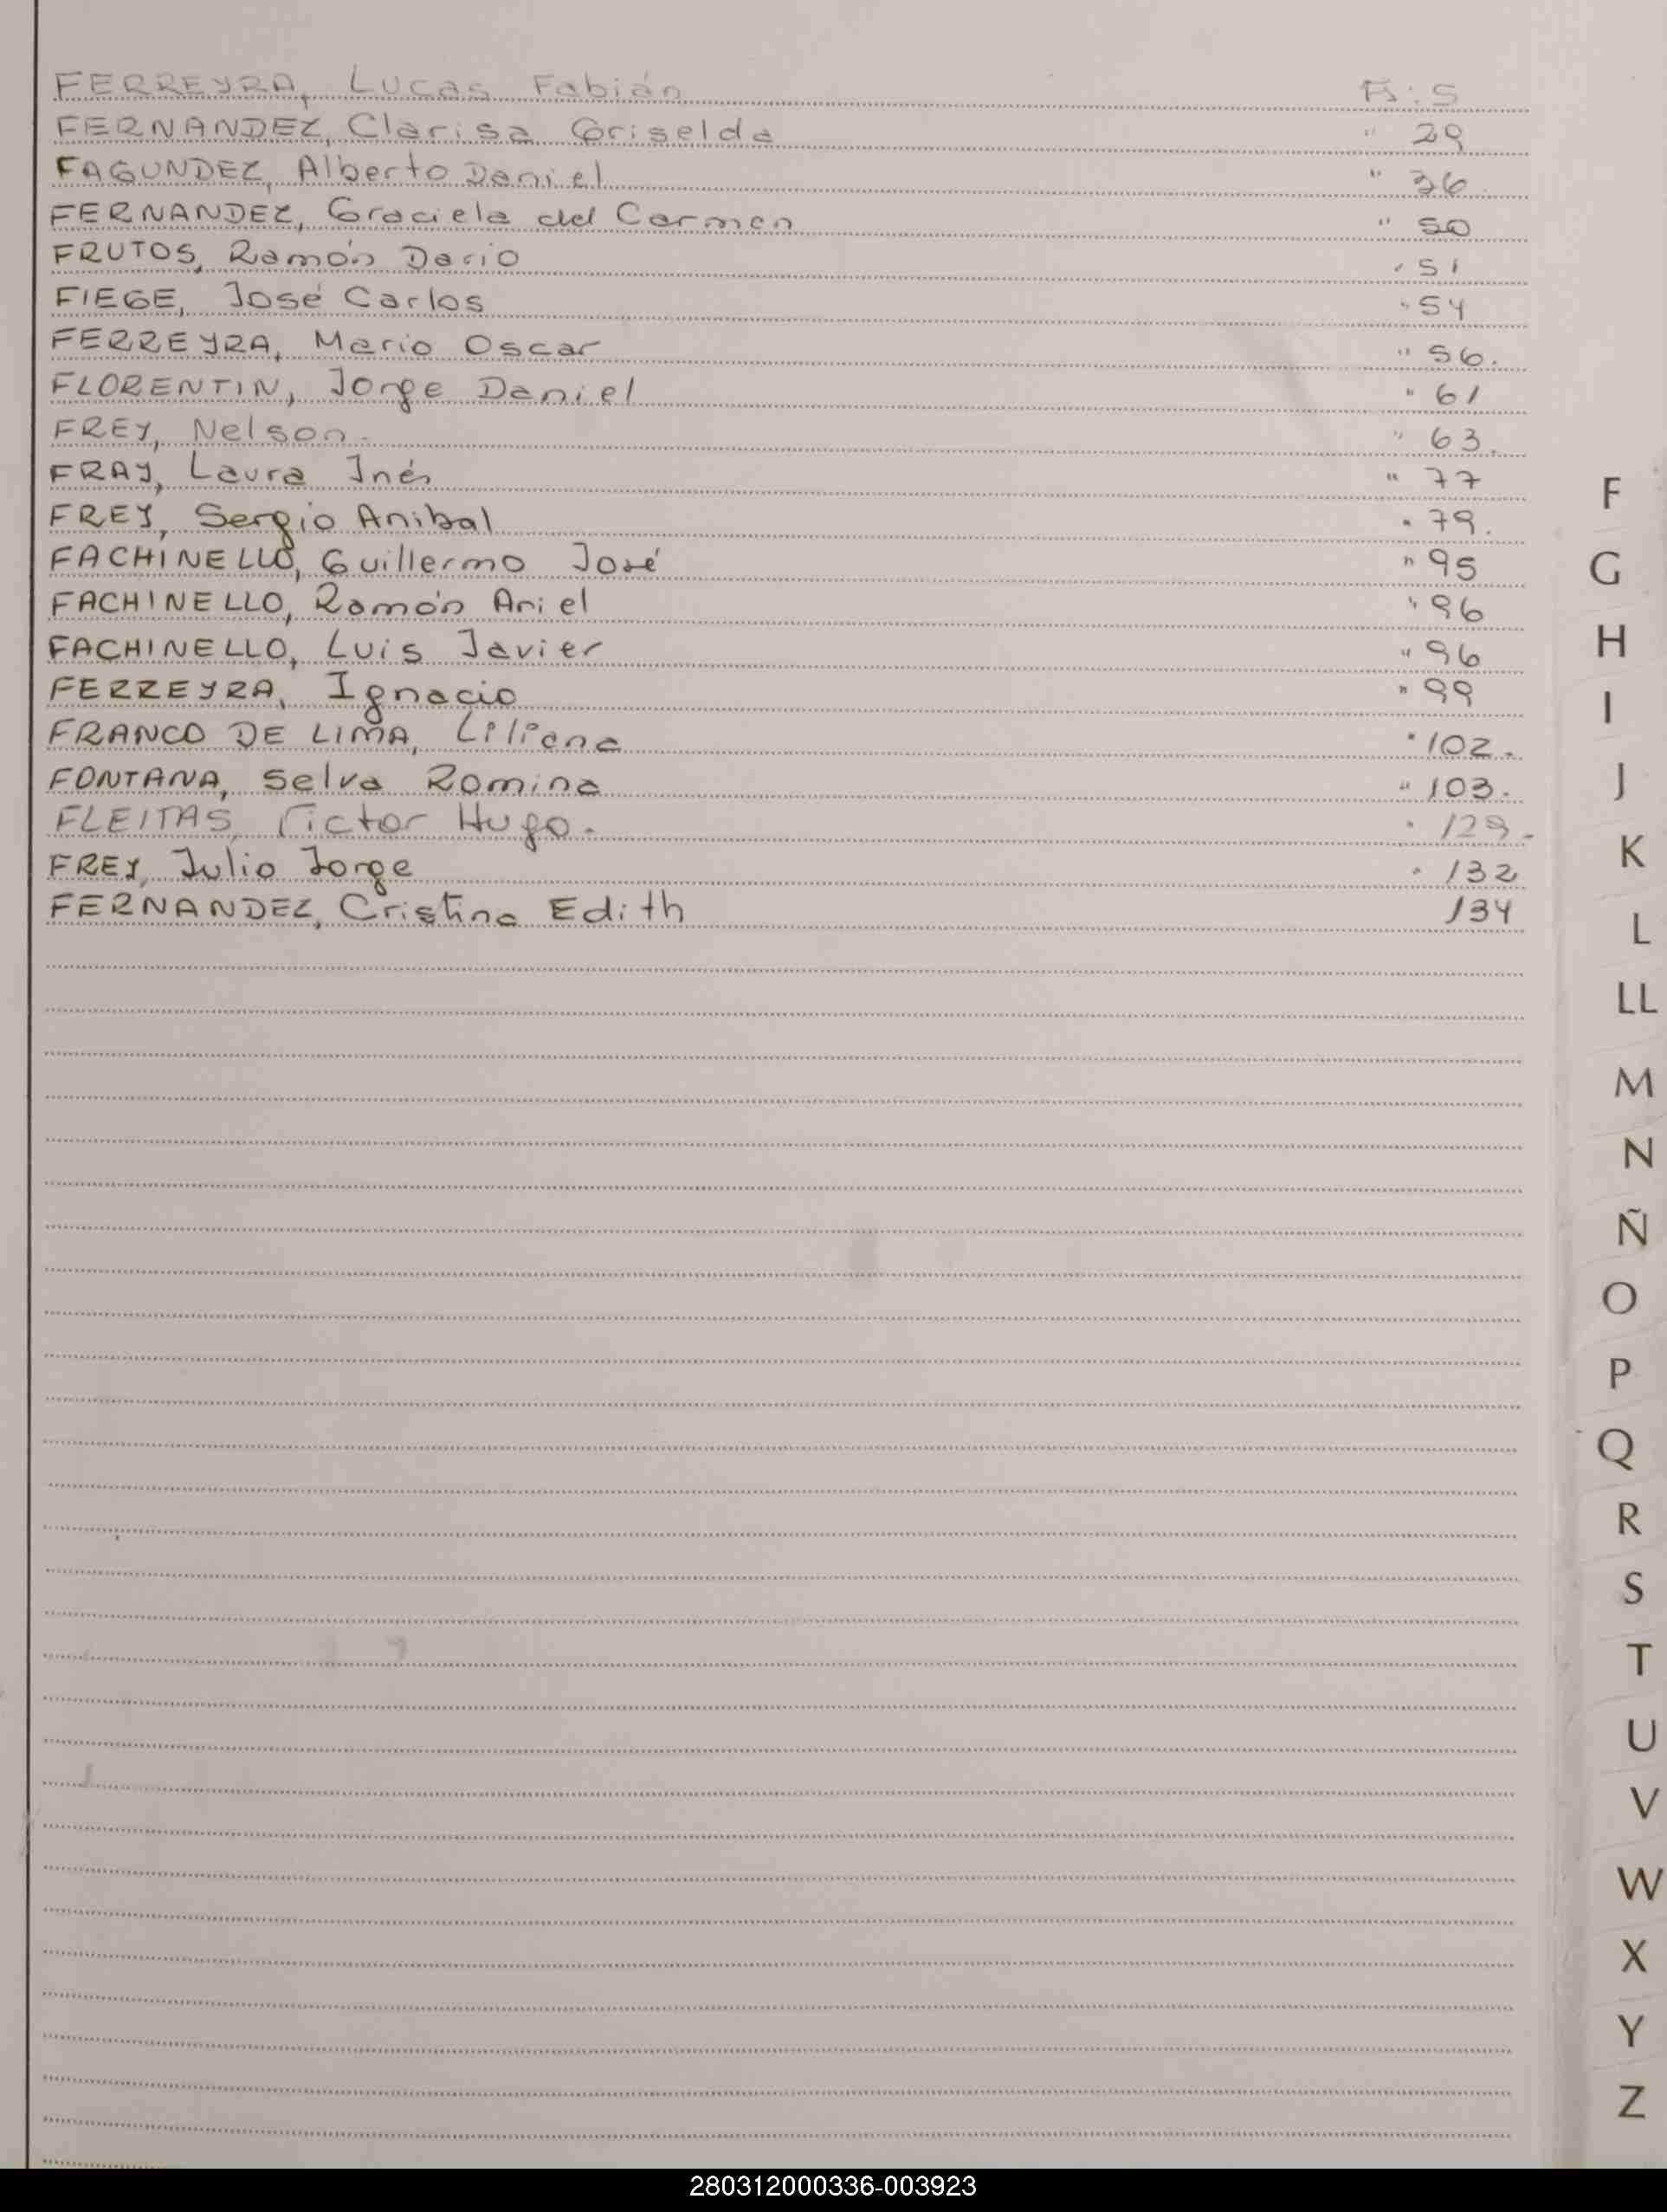 FERREYRA, Lucas Fabián Fs: 5
FERNANDEZ, Clarisa Griselda " 29
FAGUNDEZ, Alberto Daniel " 36
FERNANDEZ, Graciela del Carmen " 50
FRUTOS, Ramón Dario " 51
FIEGE, José Carlos " 54
FERREYRA, Mario Oscar " 56.
FLORENTIN, Jorge Daniel " 61
FREY, Nelson. " 63.
FRAY, Laura Inés " 77
FREY, Sergio Anibal " 79.
FACHINELLO, Guillermo José " 95
FACHINELLO, Ramón Ariel " 96
FACHINELLO, Luis Javier " 96
FERREYRA, Ignacio " 99
FRANCO DE LIMA, Liliana " 102.
FONTANA, Selva Romina " 103.
FLEITAS, Victor Hugo. " 129.
FREY, Julio Jorge " 132
FERNANDEZ, Cristina Edith 134
F
G
H
I
J
K
L
LL
M
N
Ñ
O
P
Q
R
S
T
U
V
W
X
Y
Z
280312000336-003923